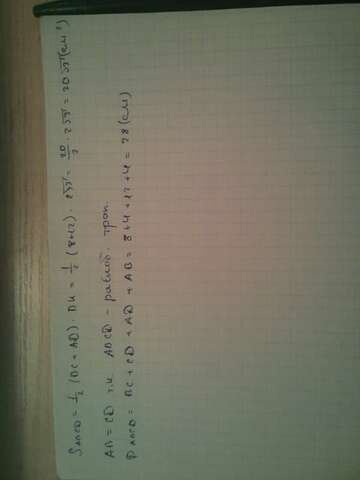 S ABCD = 1/2 (BC + AD) · BK = 1/2 (8+12) · 2√3 = 20/2 · 2√3 = 20√3 (см²)
AB = CD т.к ABCD - равноб. трап.
P ABCD = BC + CD + AD + AB = 8+4+12+4 = 28 (см)